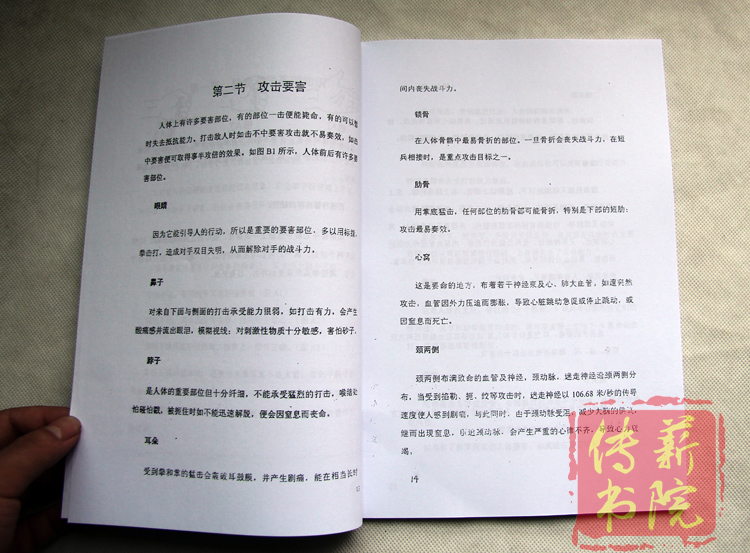 第二节 攻击要害
人体上有许多要害部位，有的部位一击便能毙命，有的可以暂
时失去抵抗能力。打击敌人时如击不中要害攻击就不易奏效，如击
中要害便可取得事半功倍的效果。如图 B1 所示，人体前后有许多要
害部位。
眼睛
因为它能引导人的行动，所以是重要的要害部位，多以用标指、
拳击打，造成对手双目失明，从而解除对手的战斗力。
鼻子
对来自下面与侧面的打击承受能力很弱，如打击有力，会产生
酸痛感并流出眼泪，模糊视线；对刺激性物质十分敏感，害怕砂子、
脖子
是人体的重要部位但十分纤细，不能承受猛烈的打击，喉结让
怕碰怕戳，被扼住时如不能迅速解脱，便会因窒息而丧命。
耳朵
受到拳和掌的猛击会震破耳鼓膜，并产生剧痛，能在相当长时
间内丧失战斗力。
锁骨
在人体骨骼中最易骨折的部位。一旦骨折会丧失战斗力，在短
兵相接时，是重点攻击目标之一。
肋骨
用掌底猛击，任何部位的肋骨都可能骨折，特别是下部的短肋；
攻击最易奏效。
心窝
这是要命的地方，布着若干神经丛及心、肺大血管，如遭突然
攻击，血管因外力压迫而膨胀，导致心脏跳动急促或停止跳动，或
因窒息而死亡。
颈两侧
颈两侧布满致命的血管及神经，颈动脉，迷走神经迨颈两侧分
布，当受到掐勒、扼、绞等攻击时，迷走神经以 106.63 米/秒的传导
速度使人感到剧痛，与此同时，由于颈动脉受阻，减少大脑的供
继而出现窒息，压迫颈动脉，会产生严重的心律不齐，导致心
竭。
14
传薪
书院